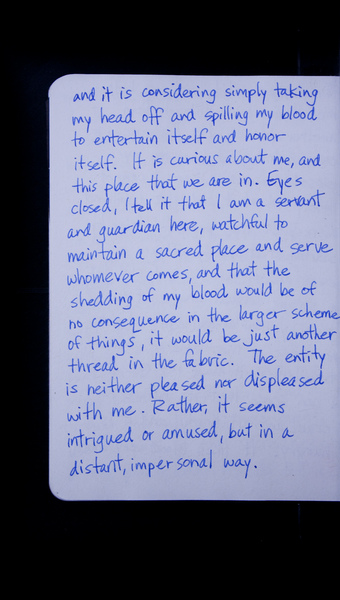 and it is considering simply taking
my head off and spilling my blood
to entertain itself and honor
itself. It is curious about me, and
this place that we are in. Eyes
closed, I tell it that I am a servant
and guardian here, watchful to
maintain a sacred place and serve
whomever comes, and that the
shedding of my blood would be of
no consequence in the larger scheme
of things, it would be just another
thread in the fabric. The entity
is neither pleased nor displeased
with me. Rather, it seems
intrigued or amused, but in a
distant, impersonal way.